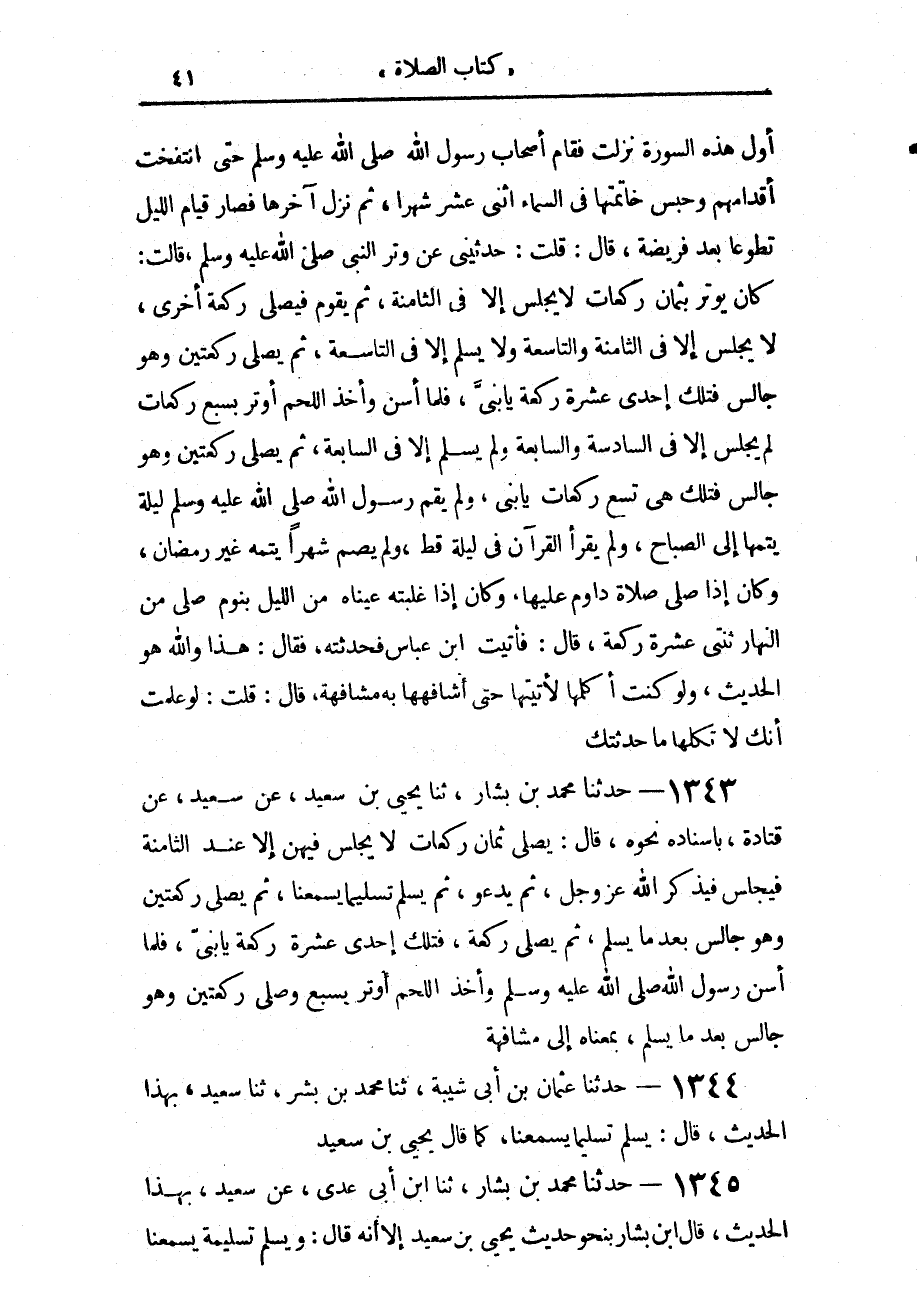 « كتاب الصلاة »
٤١
أول هذه السورة نزلت فقام أصحاب رسول الله صلى الله عليه وسلم حتى انتفخت
أقدامهم وحبس خاتمتها فى السماء اثنى عشر شهرا ، ثم نزل آخرها فصار قيام الليل
تطوعا بعد فريضة ، قال : قلت : حدثينى عن وتر النبى صلى الله عليه وسلم ، قالت :
كان يوتر بثمان ركعات لا يجلس إلا فى الثامنة ، ثم يقوم فيصلى ركعة أخرى ،
لا يجلس إلا فى الثامنة والتاسعة ولا يسلم إلا فى التاسعة ، ثم يصلى ركعتين وهو
جالس فتلك إحدى عشرة ركعة يابنىَّ ، فلما أسن وأخذ اللحم أوتر بسبع ركعات
لم يجلس إلا فى السادسة والسابعة ولم يسلم إلا فى السابعة ، ثم يصلى ركعتين وهو
جالس فتلك هى تسع ركعات يابنى ، ولم يقم رسول الله صلى الله عليه وسلم ليلة
يتمها إلى الصباح ، ولم يقرأ القرآن فى ليلة قط ، ولم يصم شهراً يتمه غير رمضان ،
وكان إذا صلى صلاة داوم عليها . وكان إذا غلبته عيناه من الليل بنوم صلى من
النهار ثنتى عشرة ركعة ، قال : فأتيت ابن عباس فحدثته ، فقال : هذا والله هو
الحديث ، ولو كنت أكلمها لأتيتها حتى أشافهها به مشافهة ، قال : قلت : لو علمت
أنك لا تكلمها ما حدثتك
١٣٤٣ — حدثنا محمد بن بشار ، ثنا يحيى بن سعيد ، عن سعيد ، عن
قتادة ، باسناده نحوه ، قال : يصلى ثمان ركعات لا يجلس فيهن إلا عند الثامنة
فيجلس فيذكر الله عز وجل ، ثم يدعو ، ثم يسلم تسليما يسمعنا ، ثم يصلى ركعتين
وهو جالس بعد ما يسلم ، ثم يصلى ركعة ، فتلك إحدى عشرة ركعة يابنىّ ، فلما
أسن رسول الله صلى الله عليه وسلم وأخذ اللحم أوتر بسبع وصلى ركعتين وهو
جالس بعد ما يسلم ، بمعناه إلى مشافهة
١٣٤٤ — حدثنا عثمان بن أبى شيبة ، ثنا محمد بن بشر ، ثنا سعيد ، بهذا
الحديث ، قال : يسلم تسليما يسمعنا ، كما قال يحيى بن سعيد
١٣٤٥ — حدثنا محمد بن بشار ، ثنا ابن أبى عدى ، عن سعيد ، بهذا
الحديث ، قال ابن بشار بنحو حديث يحيى بن سعيد إلا أنه قال : ويسلم تسليمة يسمعنا